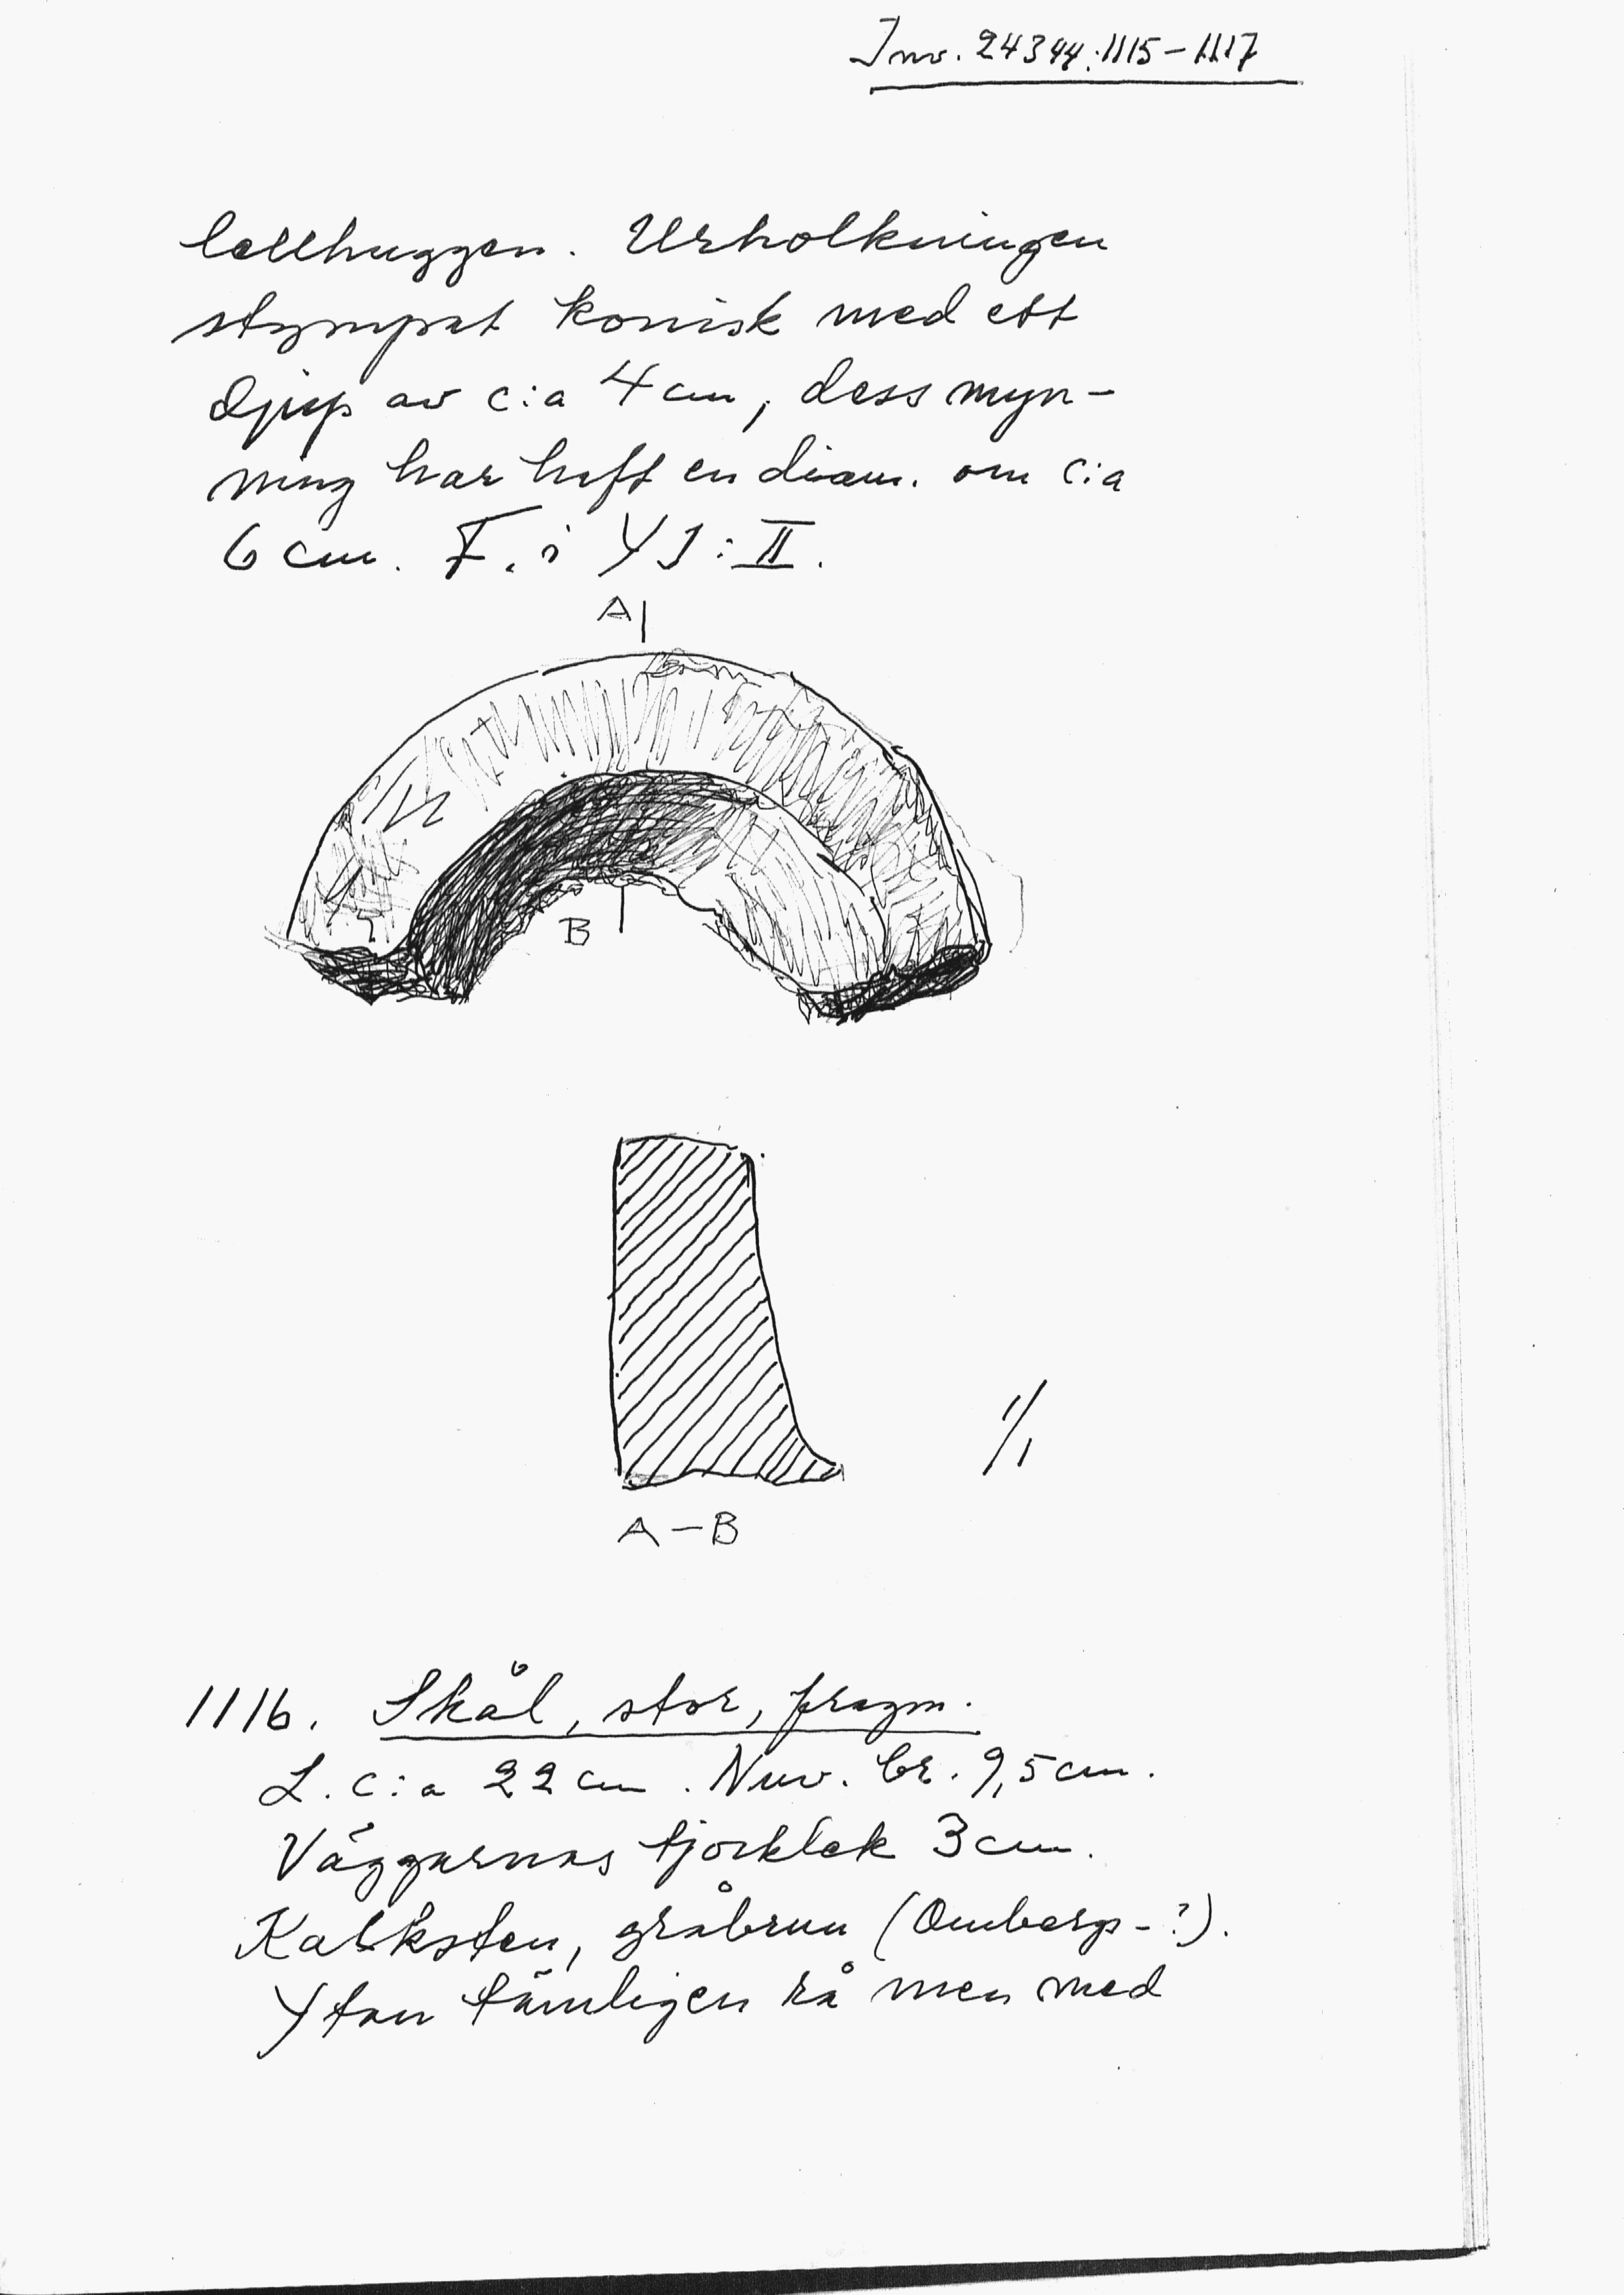 Inv. 24344:1115-1117
lellhuggen. Urholkningen
stympat konisk med ett
djup av c:a 4 cm, dess myn-
ning har haft en diam. om c:a
6 cm. F. i Y1:II.
A
B
1/1
A-B
1116. Skål, stor, fragm.
L. c:a 22 cm. Nuv. br. 9,5 cm.
Väggarnas tjocklek 3 cm.
Kalksten, gråbrun (Omberg-?).
Ytan tämligen rå men med